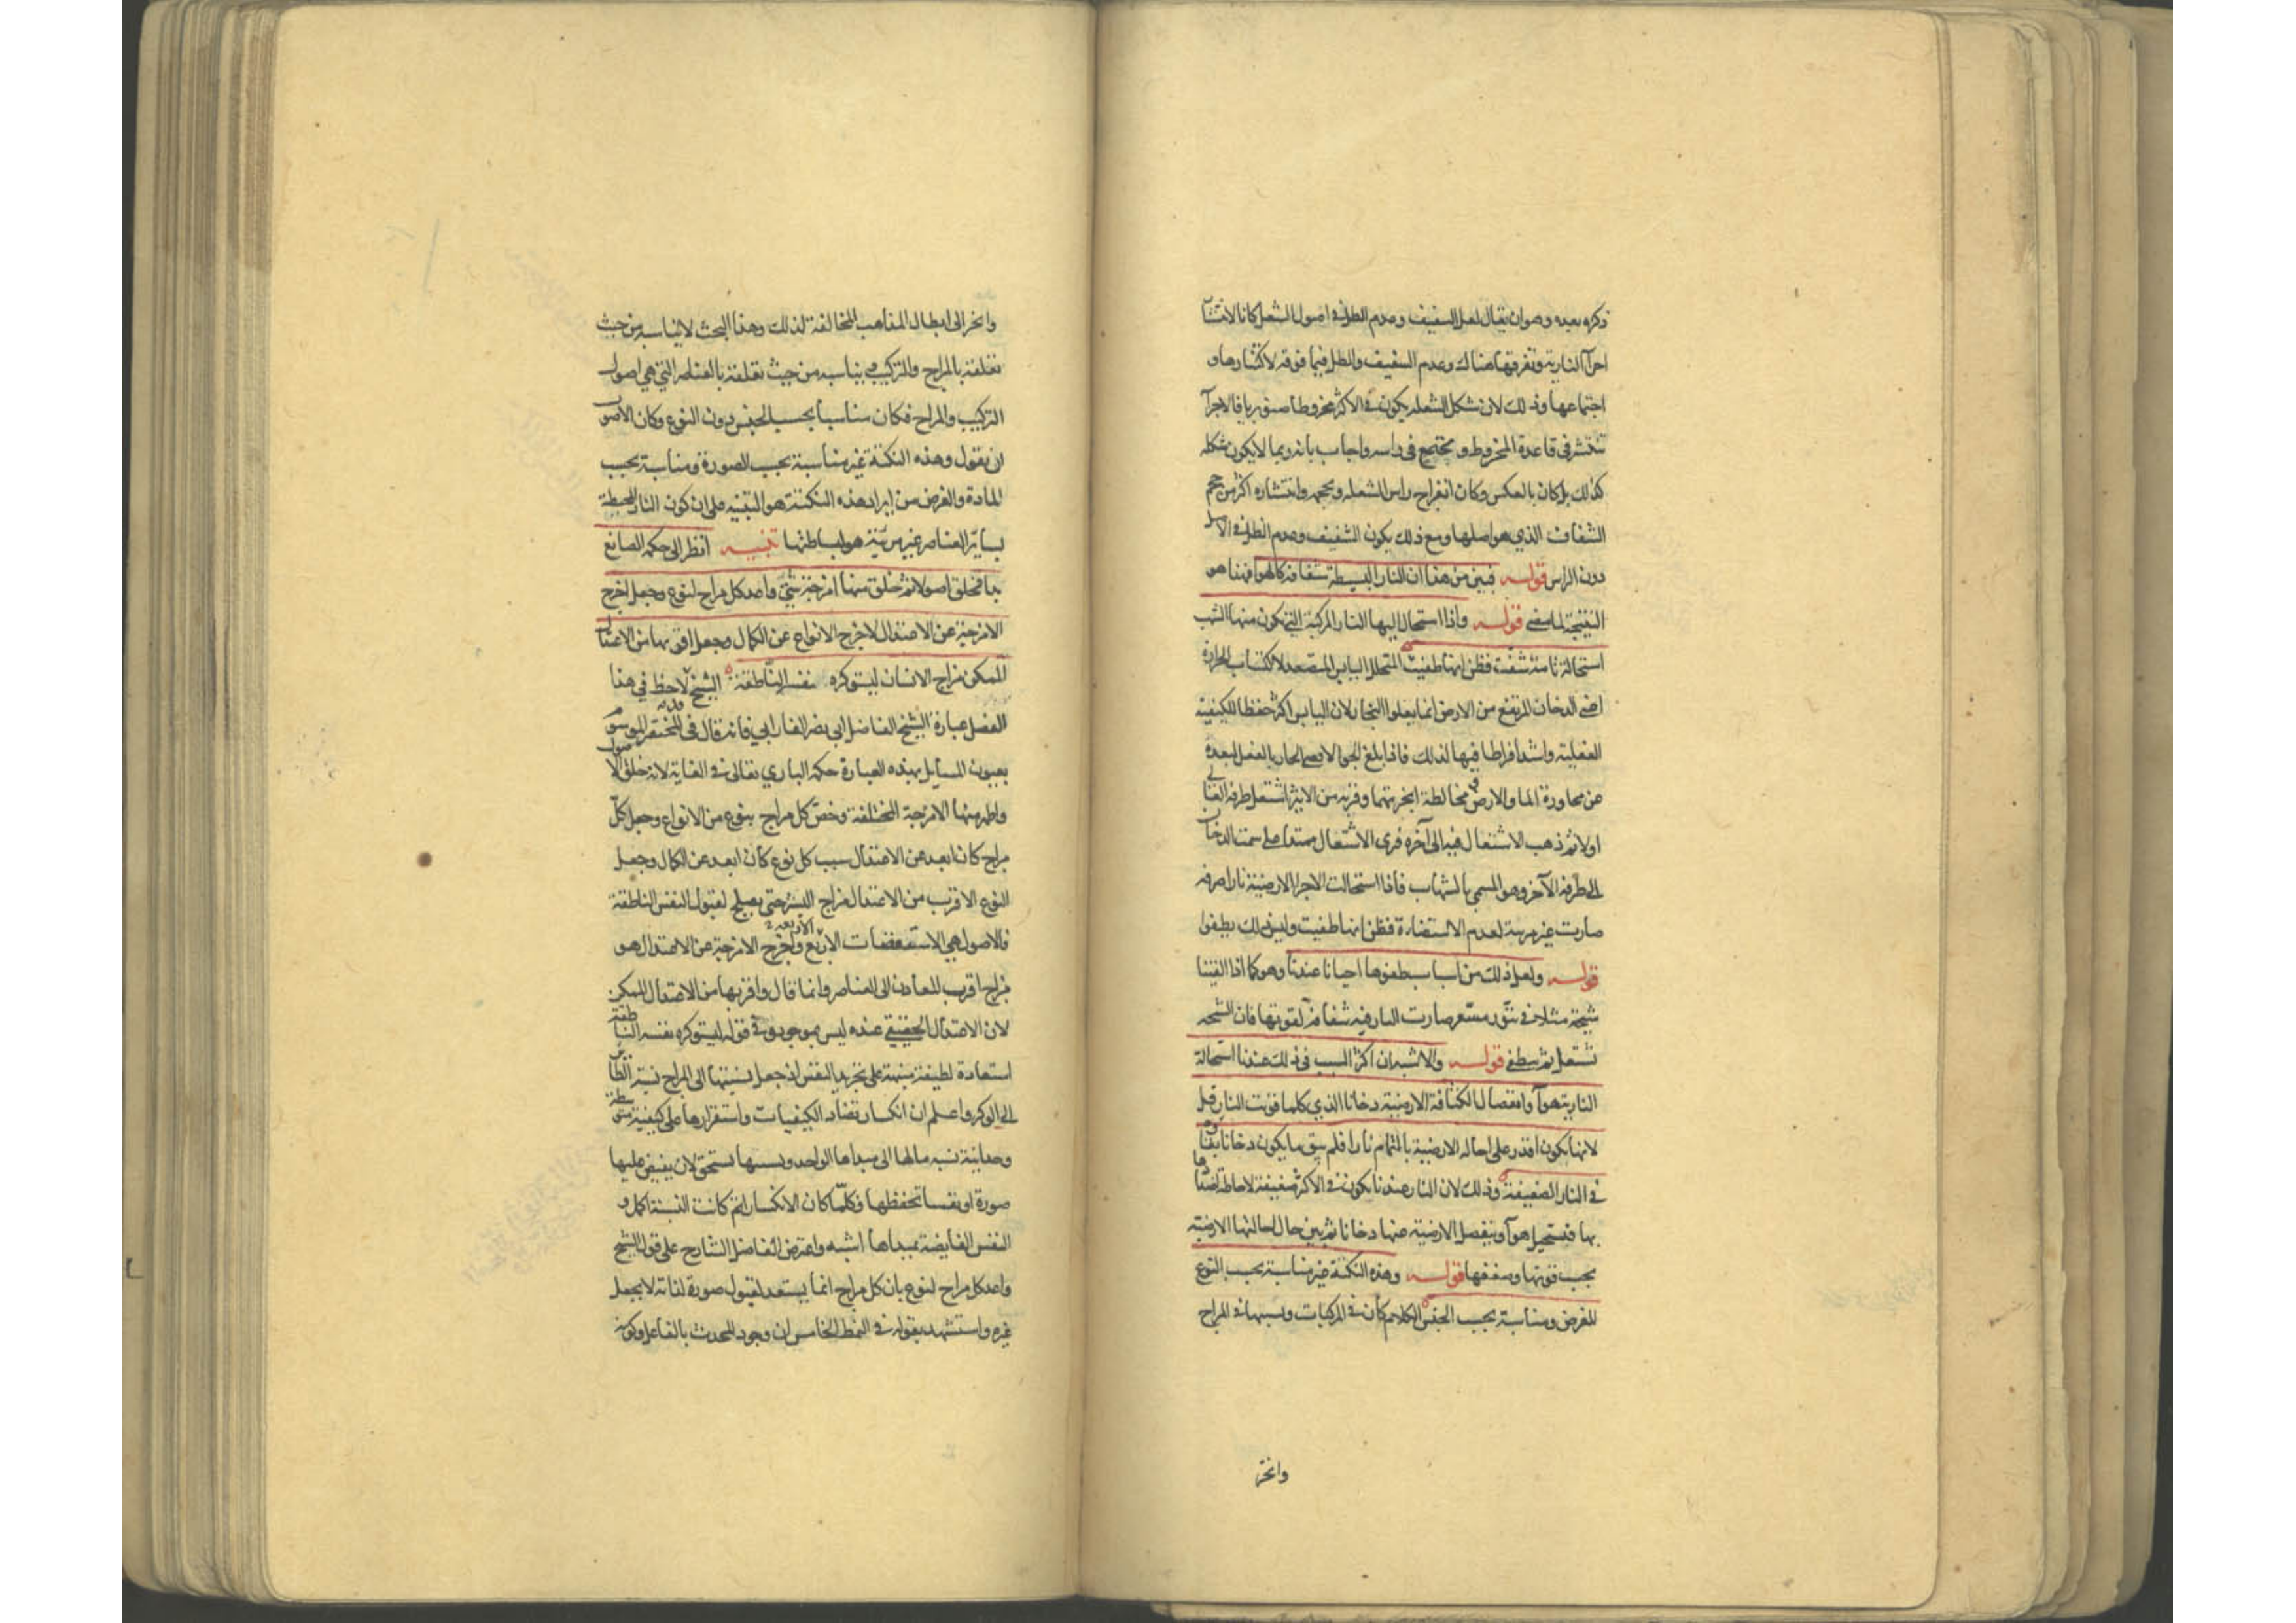 ذكره بعيده وهو ان يقال لعل الشفيف وعدم الظل في اصول الشعل كانا لانتشار
اجزآ النارية وتفرقها هناك وعدم الشفيف والظل فيما فوقه لاكتنازها و
اجتماعها وذلك لان شكل الشعله يكون في الاكثر مخروطا صنوبريا فالاجزآ
تنتشر في قاعدة المخروط و تجتمع في راسه واجاب بانه ربما لا يكون شكله
كذلك بل كان بالعكس وكان انفراج راس الشعله وحجمه وانتشاره اكثر من حجم
الشفاف الذي هو اصلها ومع ذلك يكون الشفيف وعدم الظل في الاصل
دون الراس قوله فبين من هذا ان النار البسيطة شفافه كالهوا فهذا هو
النتيجة لما مضى قوله واذا استحال اليها النار المركبة التي تكون منها الشهب
استحالة تامة شفت فظن انها طفيت المتحلل اليابس المتصعد لاكتساب الحرارة
اعني الدخان المرتفع من الارض انما يعلوا البخار لان اليابس اكثر حفظا للكيفية
الفعلية واشد افراطا فيها لذلك فاذا بلغ الجو الاقصى الحار بالفعل لبعده
عن مجاورة الما والارض ومخالطة ابخرتهما وقربه من الاثير اشتعل طرفه العالي
اولا ثم ذهب الاشتعال فيه الى آخره فرى الاشتعال ممتدا على سمت الدخان
الى طرفه الآخر وهو المسمى بالشهاب فاذا استحالت الاجزا الارضية نارا صرفه
صارت غير مرية لعدم الاستضاءة فظن انها طفيت وليس ذلك بطفوا
قوله ولعل ذلك من اسباب طفوها احيانا عندنا وهو كما اذا القينا
شيحة مثلا في تنور مسعر صارت النار فيه شفافة لقوتها فان الشيحه
تشتعل ثم تنطفي قوله والاشبه ان اكثر السبب في ذلك عندنا استحالة
النارية هوآ وانفصال الكثافة الارضية دخانا الذي كلما قويت النار قل
لانها يكون اقدر على احاله الارضية بالتمام نارا فلم يبق ما يكون دخانا بقاؤه
في النار الضعيفة وذلك لان النار عندنا يكون في الاكثر ضعيفة لاحاطة اضدادها
بها فتستحيل هوآ وينفصل الارضية عنها دخانا ثم يبين حال احالتها الارضية
بحسب قوتها وضعفها قوله وهذه النكتة غير مناسبة بحسب النوع
للغرض ومناسبة بحسب الجنس الكلام كان في المركبات ونسبها في المزاج
وانجر
وانجر الى ابطال المذاهب المخالفة لذلك وهذا البحث لا يناسبه من حيث
تعلقه بالمزاج والتركيب ويناسبه من حيث تعلقه بالعناصر التي هي اصول
التركيب والمزاج فكان مناسبا بحسب الجنس دون النوع وكان الاصوب
ان يقول وهذه النكتة غير مناسبة بحسب الصورة ومناسبة بحسب
المادة والغرض من ايراد هذه النكتة هو التنبيه على ان كون النار المحيطة
بساير العناصر غير مرئية هو لبساطتها تنبيه انظر الى حكمة الصانع
بدا فخلق اصولا ثم خلق منها امزجة شتى واعد كل مزاج لنوع وجعل اخرج
الامزجة عن الاعتدال لاخرج الانواع عن الكمال وجعل اقربها من الاعتدال
الممكن مزاج الانسان ليستوكره نفسه الناطقة الشيخ لاحظ في هذا
الفصل عبارة الشيخ الفاضل ابي نصر الفارابي فانه قال في المختصر الموسوم
بعيون المسايل بهذه العبارة حكمة الباري تعالى في الغاية لانه خلق الاصول
واظهر منها الامزجة المختلفة وخص كل مزاج بنوع من الانواع وجعل كل
مزاج كان ابعد عن الاعتدال سبب كل نوع كان ابعد عن الكمال وجعل
النوع الاقرب من الاعتدال مزاج البشر حتى يصلح لقبول النفس الناطقة
فالاصول هي الاستقصات الاربع واخرج الامزجة عن الاعتدال هو
مزاج اقرب المعادن الى العناصر وانما قال واقربها من الاعتدال الممكن
لان الاعتدال الحقيقي عنده ليس بموجود وفي قوله ليستوكره نفسه الناطقة
استعارة لطيفة منبهة على تجريد النفس اذ جعل نسبتها الى المزاج نسبة الطاير
الى الوكر واعلم ان انكسار تضاد الكيفيات واستقرارها على كيفية متوسطة
وحدانية نسبه مالها الى مبداها الواحد وبسببها تستحق لان يفيض عليها
صورة او نفسا تحفظها وكلما كان الانكسار اتم كانت النسبة اكمل و
النفس الفايضة بمبداها اشبه واعترض الفاضل الشارح على قول الشيخ
واعد كل مزاج لنوع بان كل مزاج انما يستعد لقبول صورة لذاته لا بجعل
غيره واستشهد بقوله في النمط الخامس ان وجود المحدث بالفاعل وكونه